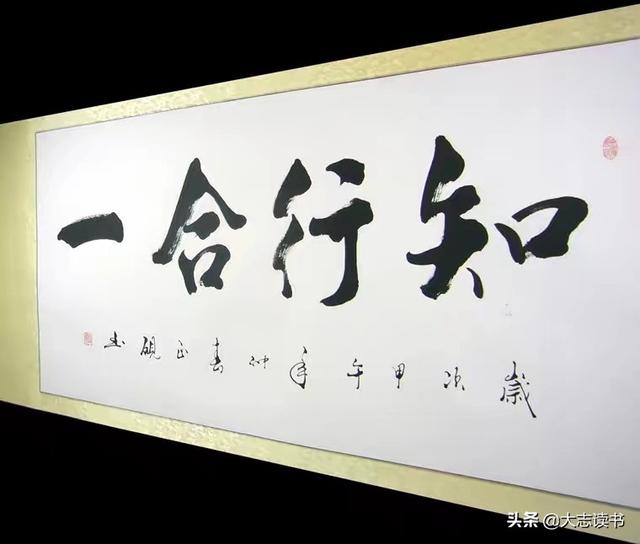 知行合一
歲次甲午年仲春正硯书
头条 @大志读书